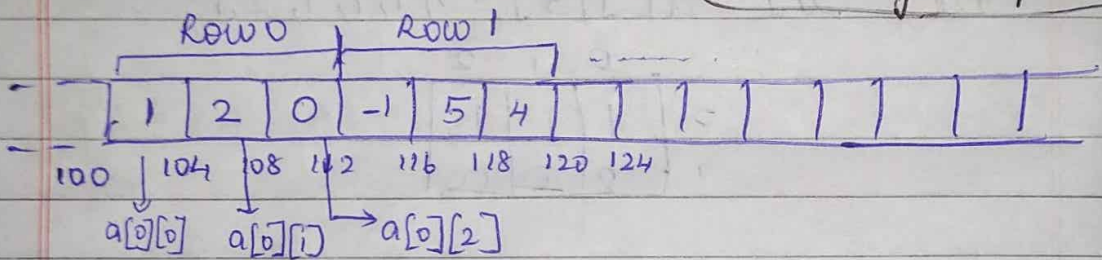 Row 0 Row 1
1 2 0 -1 5 4
100 104 108 112 116 118 120 124
a[0][0] a[0][1] a[0][2]